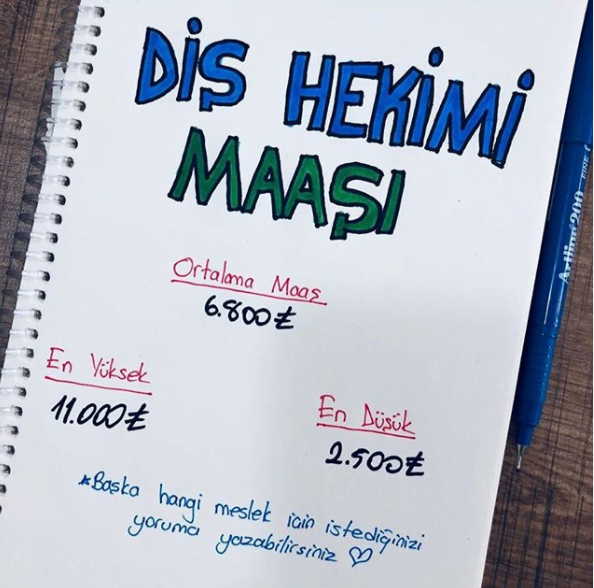 DİŞ HEKİMİ
MAAŞI
Ortalama Maaş
6.800₺
En Yüksek
11.000₺
En Düşük
2.500₺
*Başka hangi meslek için istediğinizi
yoruma yazabilirsiniz ♡
Artline 200